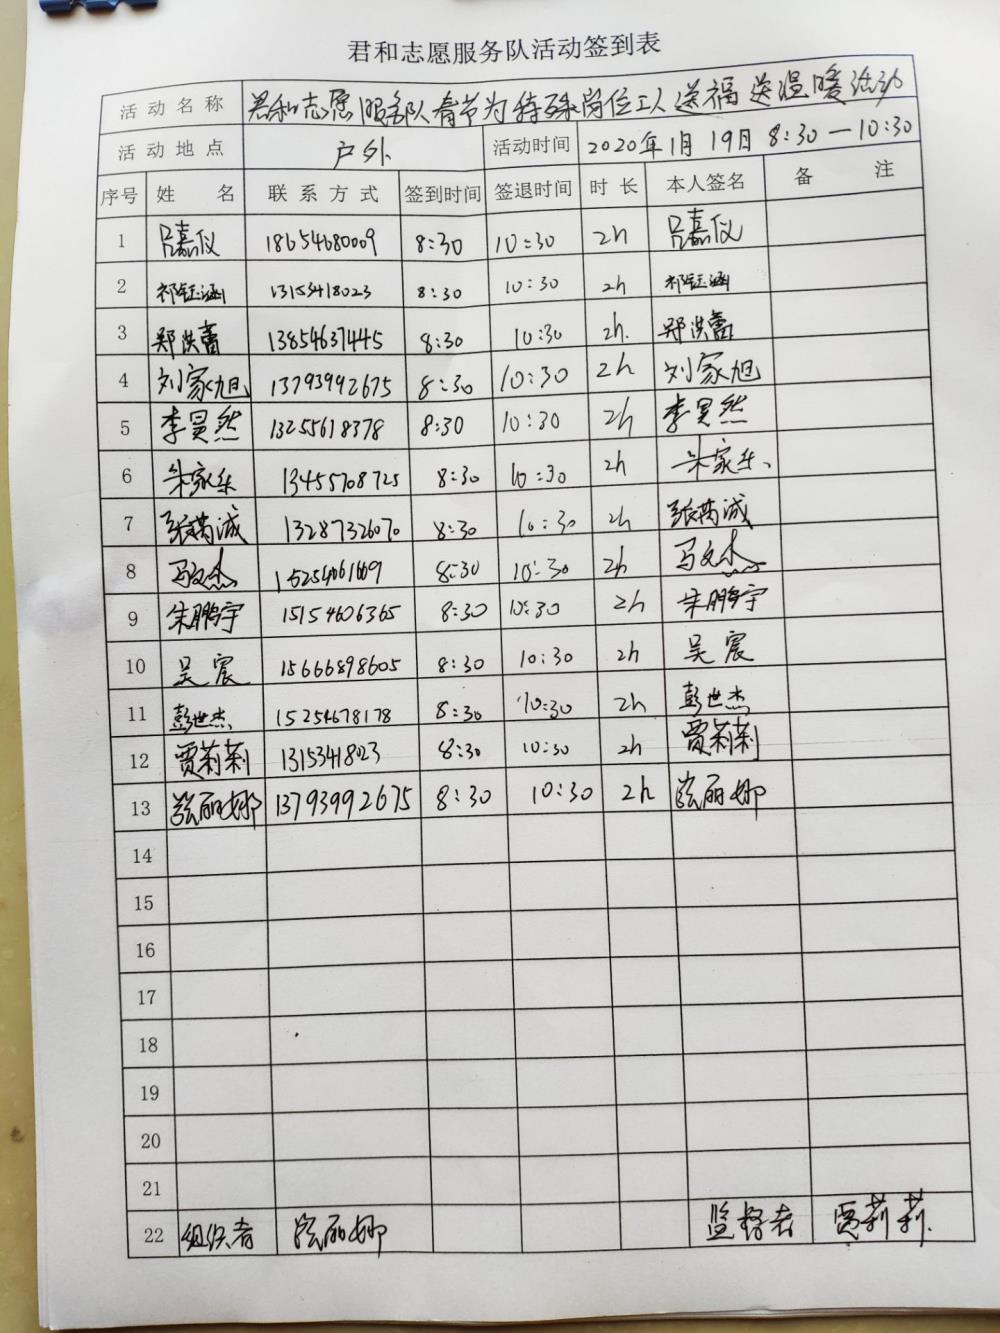 君和志愿服务队活动签到表
活动名称 君和志愿服务队春节为特殊岗位工人送福送温暖活动
活动地点 户外 活动时间 2020年1月19日 8:30—10:30
序号 姓名 联系方式 签到时间 签退时间 时长 本人签名 备注
1 吕嘉仪 18654680009 8:30 10:30 2h 吕嘉仪
2 祁钰涵 13153418023 8:30 10:30 2h 祁钰涵
3 郑洪蕾 13854637445 8:30 10:30 2h. 郑洪蕾
4 刘家旭 13793992675 8:30 10:30 2h 刘家旭
5 李昊然 13255618378 8:30 10:30 2h 李昊然
6 朱家乐 13455708725 8:30 10:30 2h 朱家乐
7 张芮诚 13287326070 8:30 10:30 2h 张芮诚
8 马文杰 8:30 10:30 2h 马文杰
9 朱鹏宇 15154606365 8:30 10:30 2h 朱鹏宇
10 吴宸 15666898605 8:30 10:30 2h 吴宸
11 彭世杰 15254678178 8:30 10:30 2h 彭世杰
12 贾莉莉 1315341823 8:30 10:30 2h 贾莉莉
13 丽娜 13793992675 8:30 10:30 2h 丽娜
14
15
16
17
18
19
20
21
22 组织者 丽娜 监督者 贾莉莉